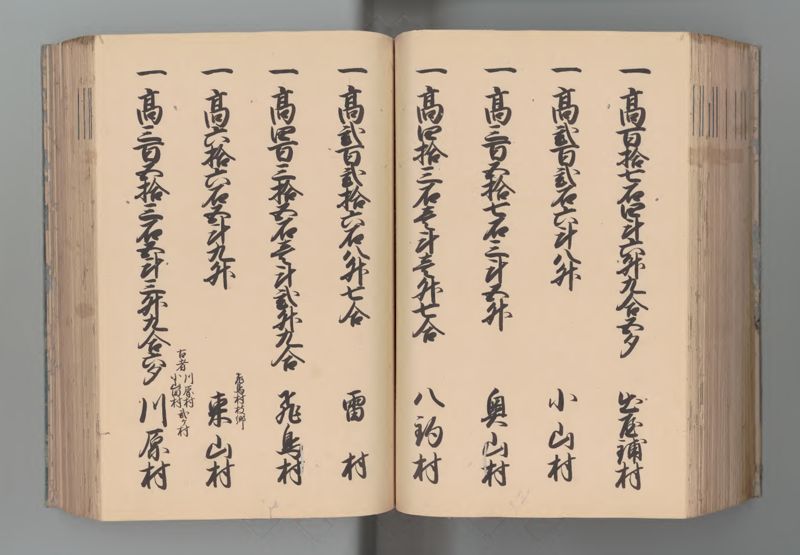 一 高百拾七石四斗六升九合五夕 出屋鋪村
一 高弐百弐石六斗八升 小山村
一 高三百五拾七石三斗五升 奥山村
一 高四拾三石壱斗壱升七合 八釣村
一 高弐百弐拾六石八升七合 雷村
一 高四百三拾五石壱斗弐升九合 飛鳥村
一 高六拾六石五斗九升 飛鳥村枝郷 東山村
一 高三百五拾三石五斗三升九合六夕 古者 川原村 小山田村 弐ケ村 川原村